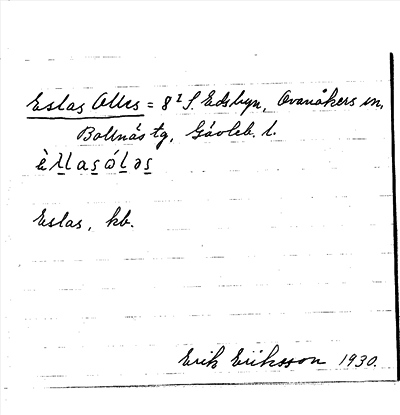 Eslas Olles = 8 2 S. Edsbyn, Ovanåkers sn,
Bollnäs tg, Gävleb. l.
Eslas, kb.
Erik Eriksson 1930.